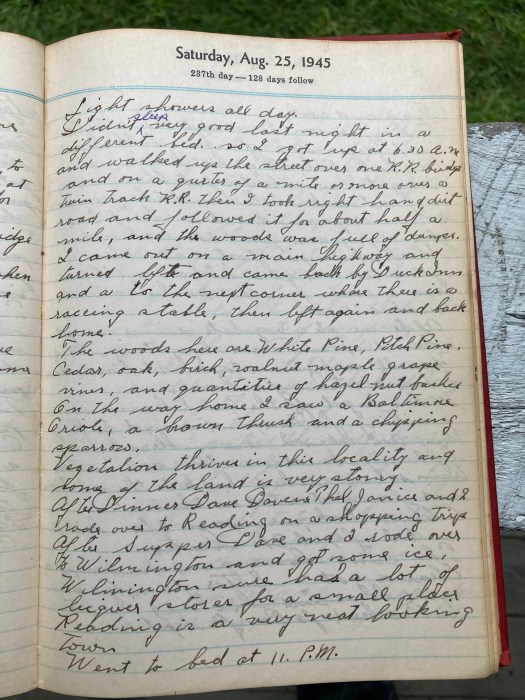 Saturday, Aug. 25, 1945
237th day — 128 days follow
Light showers all day.
sleep
Didn't very good last night in a
different bed. so I got up at 6.30 A.M
and walked up the street over one R.R. bridge
and on a qurter of a mile or more over a
twin track R.R. then I took right hand dirt
road and followed it for about half a
mile, and the woods was full of
I came out on a main highway and
turned left and came back by Duck Inn
and a to the next corner where there is a
raceing stable, then left again and back
home.
The woods here are White Pine, Pitch Pine.
Cedar, oak, birch, walnut maple grape
vines, and quantities of hazel nut bushes
On the way home I saw a Baltimore
Oriole, a brown thrush and a chipping
sparrow.
Vegetation thrives in this locality and
some of the land is very stony.
After Dinner Dave Thel Janice and I
rode over to Reading on a shopping trip
After Supper Dave and I rode over
To Wilmington and got some ice,
Wilmington sure has a lot of
liquer stores for a small place
Reading is a very neat looking
Town
Went to bed at 11. P.M.
ridge